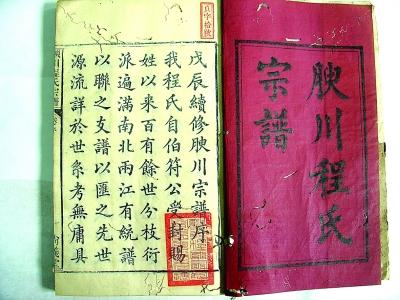 腴川程氏
宗譜
貞字拾號
戊辰續修腴川宗譜序
我程氏自伯符公受封賜
姓以來百有餘世分枝衍
派遍滿南北兩江有統譜
以聯之支譜以匯之先世
源流詳於世系考無庸具
川程氏宗譜